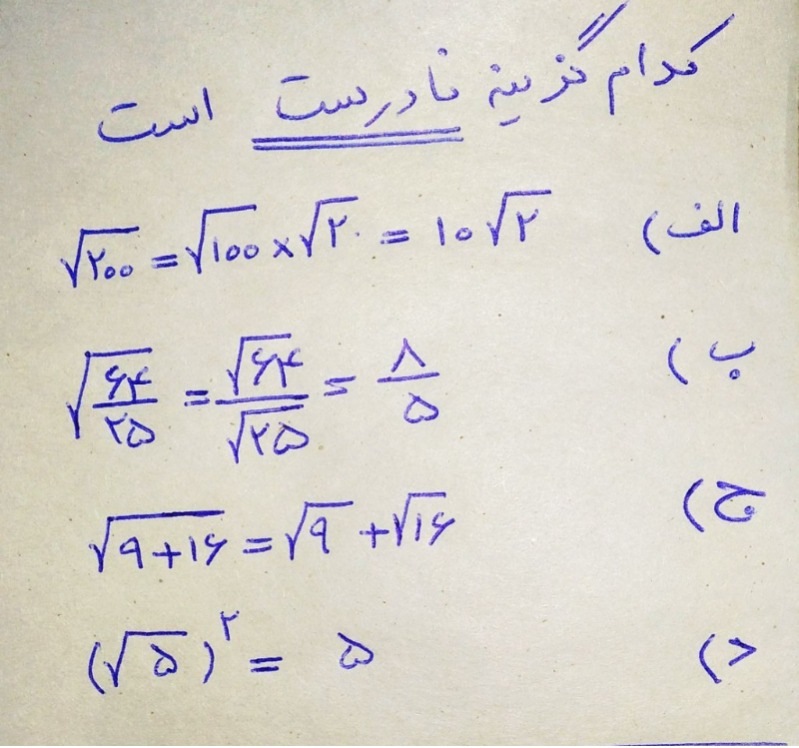 کدام گزینه نادرست است
الف) √۲۰۰ = √۱۰۰ × √۲ = ۱۰√۲
ب) √(۶۴/۲۵) = √۶۴/√۲۵ = ۸/۵
ج) √(۹+۱۶) = √۹ + √۱۶
د) (√۵)^۲ = ۵